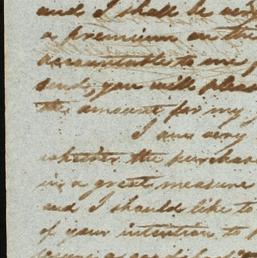 and I shall be
a premium on the
accountable to me
send, you will pleas
the amount for my
I am very
whether the purchas
in a great measure
and I should like to
of your intention to